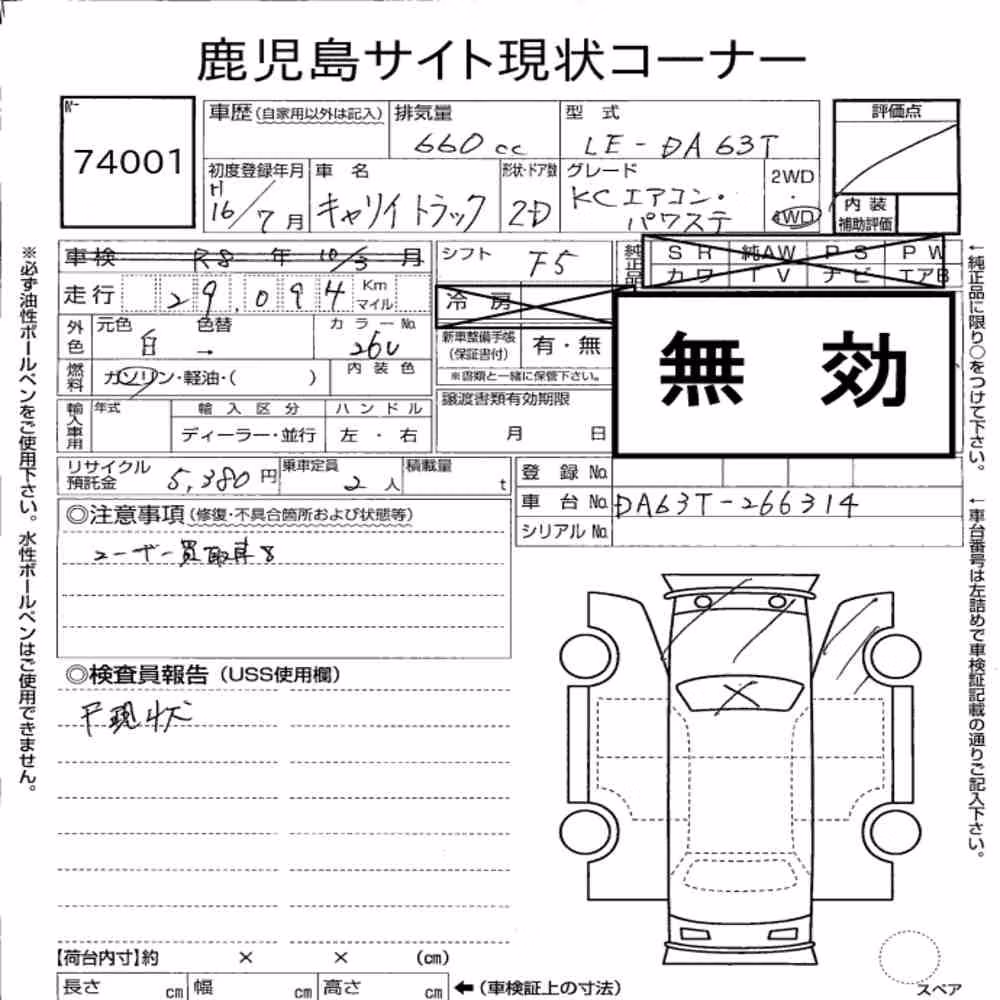 鹿児島サイト現状コーナー
№
74001
車歴(自家用以外は記入)
排気量
660 cc
型式
LE-DA63T
評価点
初度登録年月
H
16/7月
車名
キャリイトラック
形状・ドア数
2D
グレード
KCエアコン・
パワステ
2WD
・
4WD
内装
補助評価
車検 R8年 10/3月
走行 29,094 Km
マイル
シフト
F5
純正品
SR 純AW PS PW
カワ TV ナビ エアB
冷房
外色
元色
白
色替
→
カラーNo.
26U
新車整備手帳
(保証書付)
有・無
※書類と一緒に保管下さい。
無効
燃料
ガソリン・軽油・( )
内装色
輸入車用
年式
輸入区分
ディーラー・並行
ハンドル
左・右
譲渡書類有効期限
月 日
リサイクル
預託金
5,380円
乗車定員
2人
積載量
t
登録No.
車台No. DA63T-266314
シリアルNo.
◎注意事項(修復・不具合箇所および状態等)
ユーザー買取車8
◎検査員報告(USS使用欄)
【荷台内寸】約 × × (cm)
長さ cm 幅 cm 高さ cm ←(車検証上の寸法)
スペア
※必ず油性ボールペンをご使用下さい。水性ボールペンはご使用できません。
←純正品に限り○をつけて下さい。
←車台番号は左詰めで車検証記載の通りご記入下さい。